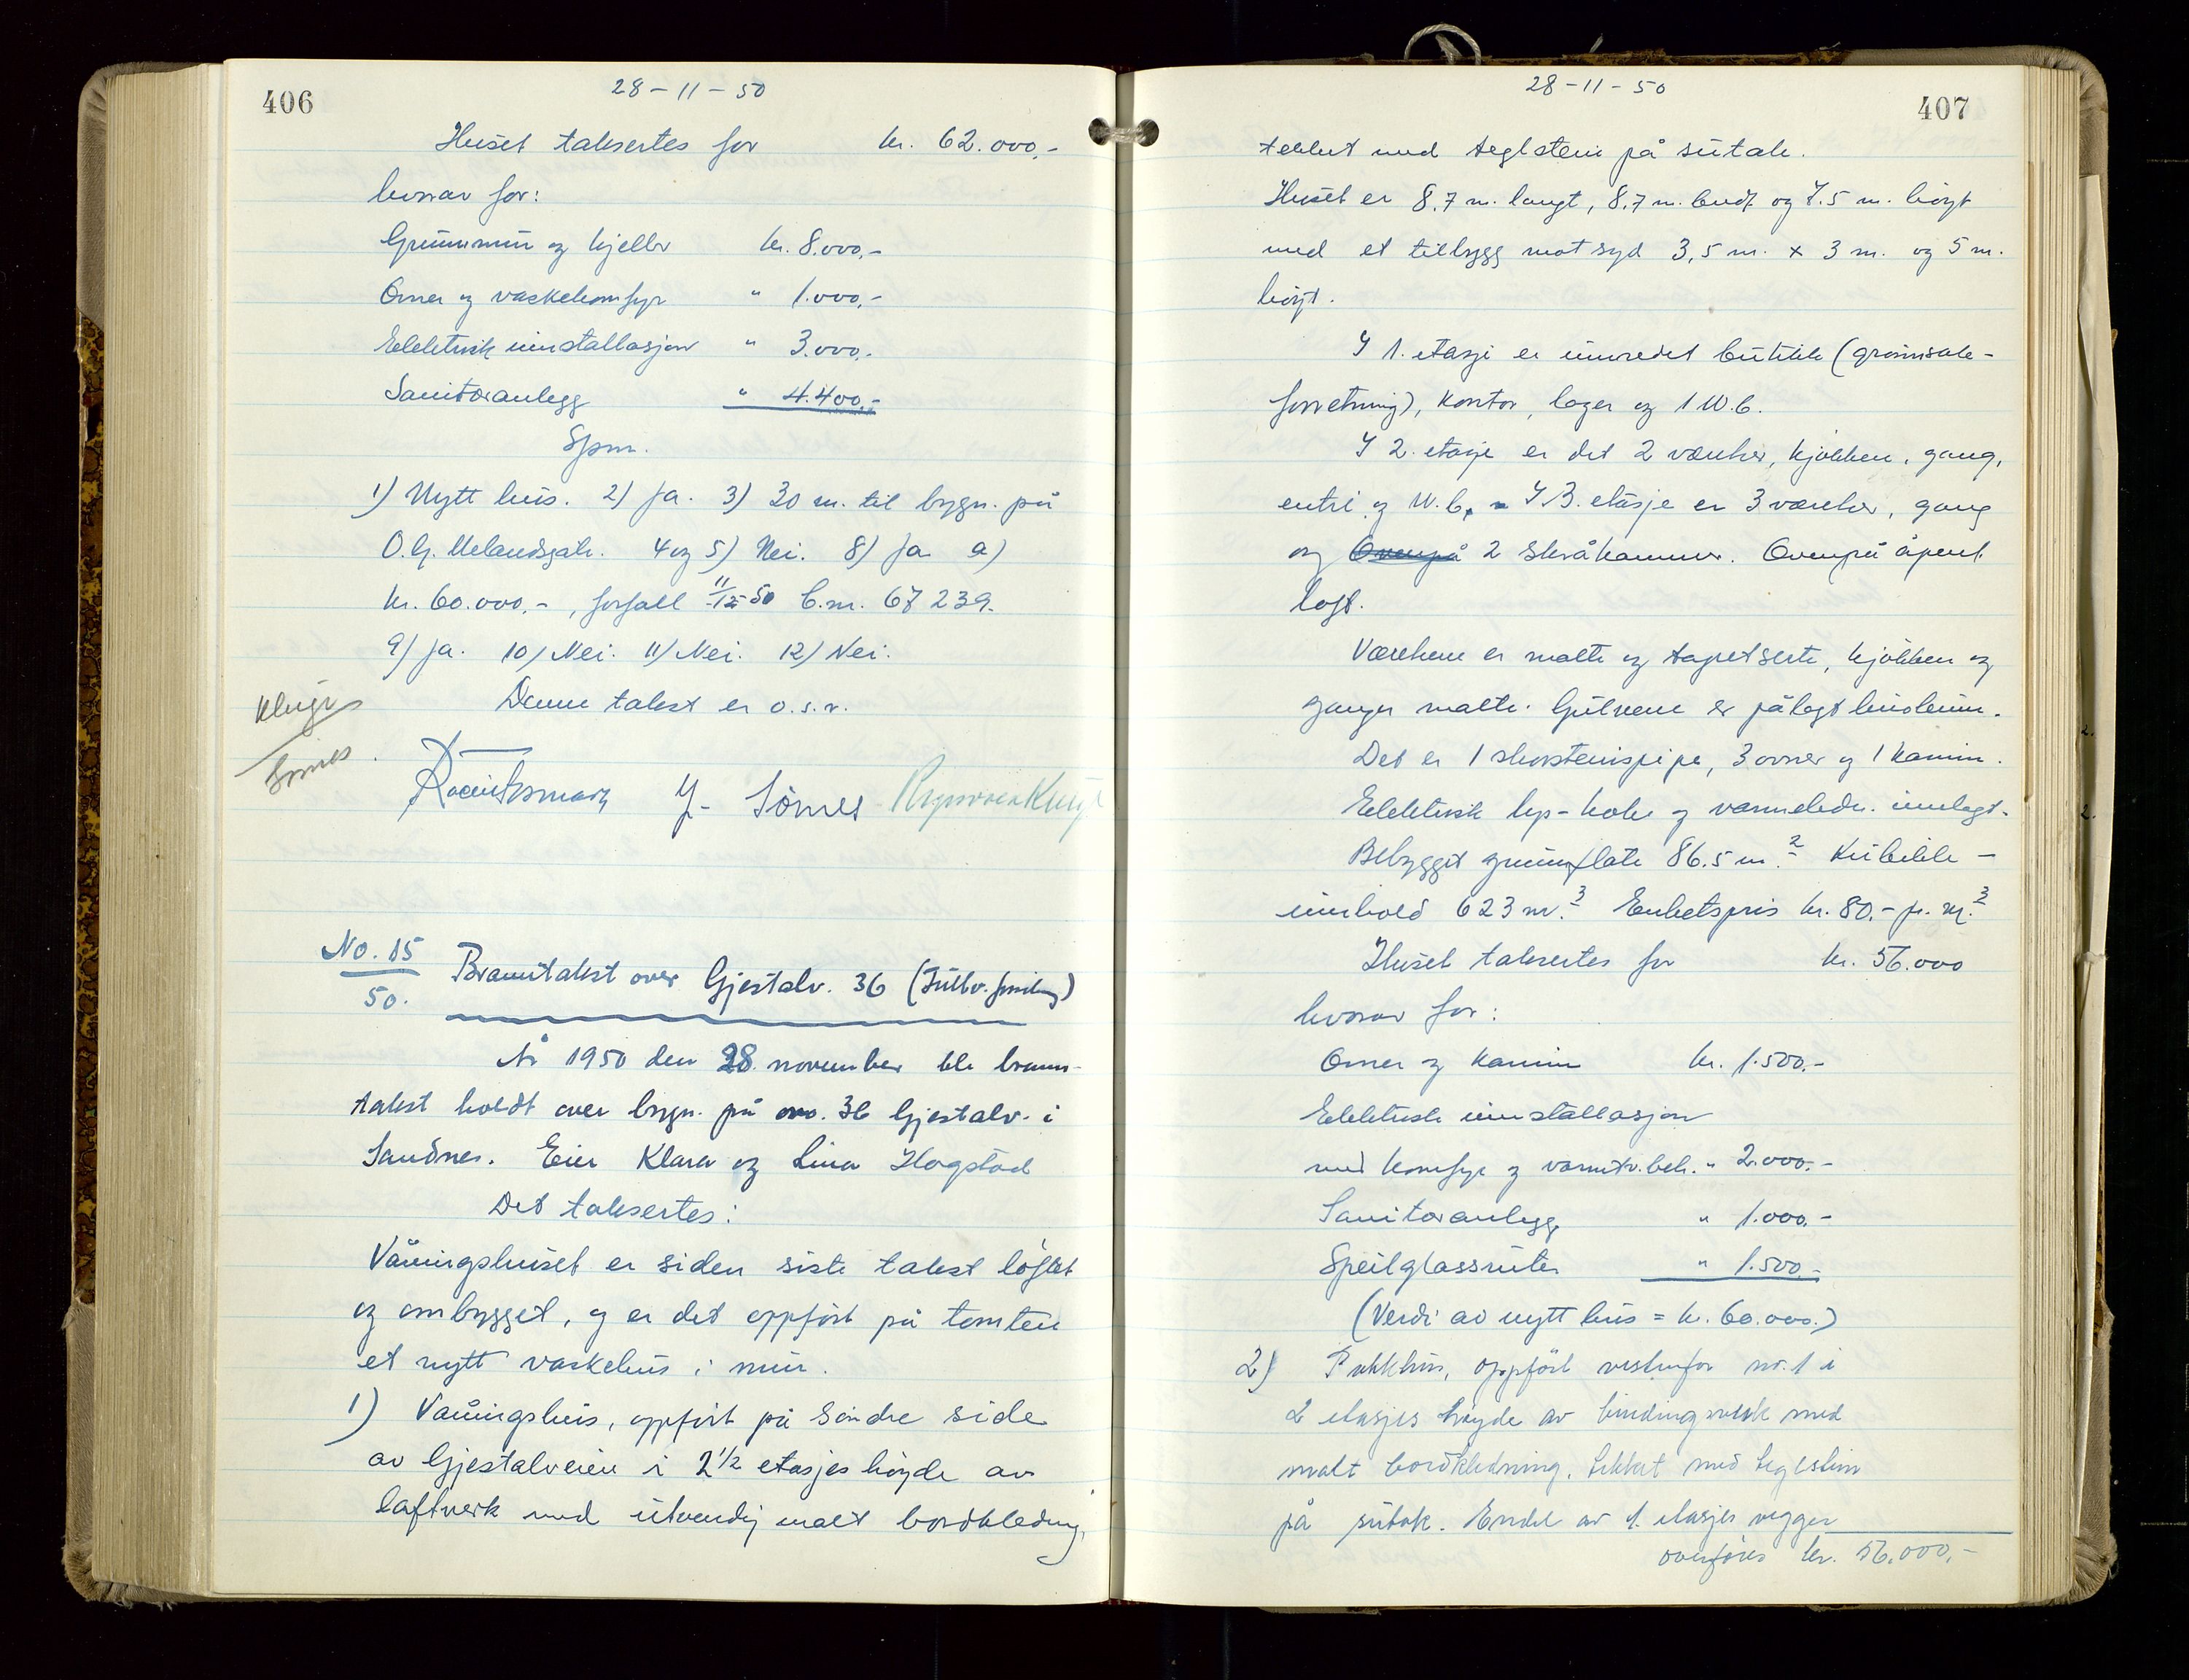 406
28-11-50
Huset taksertes for kr. 62.000,-
hvorav for:
Grunnmur og kjeller kr. 8.000,-
Ovner og vaskekomfyr " 1.000,-
Eelektrisk innstallasjon " 3.000,-
Sanitæranlegg " 4.400,-
Spm.
1) Nytt hus. 2) Ja. 3) 30 m. til bygn. på
O. G. Melandsgate. 4 og 5) Nei. 8) Ja a)
kr. 60.000,-, forfall 11/12-50 b.m. 67239.
9) Ja. 10) Nei. 11) Nei. 12) Nei.
Denne takst er o.s.v.
Kluge
Sömes
Y. Sömes
No. 15
50.
Branntakst over Gjestalv. 36
År 1950 den 28. november ble brann-
takst holdt over bygn. på nr. 36 Gjestalv. i
Sandnes. Eier Klara og Lina Hogstad
Det taksertes:
Våningshuset er siden siste takst löftet
og ombygget, og er det oppfört på tomten
et nytt vaskehus i mur.
1) Våningshus, oppfört på söndre side
av Gjestalveien i 2 1/2 etasjes höyde av
laftverk med utvendig malt bordkledning,
407
28-11-50
tekket med teglsten på sutak.
Huset er 8.7 m. langt, 8.7 m. bredt og 7.5 m. höyt
med et tilbygg mot syd 3,5 m. x 3 m. og 5 m.
höyt.
I 1. etasje er innredet butikk (grönnsak-
forretning), kontor, lager og 1 W.C.
I 2. etasje er det 2 værelser, kjökken, gang,
entré og W.C. I 3. etasje er 3 værelser, gang
og Ovenpå 2 skråkammer. Ovenpå åpent
loft.
Værelsene er malte og tapetserte, kjökken og
ganger malte. Gulvene er pålagt linoleum.
Det er 1 skorstenspipe, 3 ovner og 1 kamin.
Eelektrisk lys- koke og varmeledn. innlagt.
Bebygget grunnflate 86.5 m.² Kubikk-
innhold 623 m.³ Enhetspris kr. 80.- pr. m.³
Huset taksertes for kr. 56.000
hvorav for:
Ovner og kamin kr. 1.500.-
Eelektrisk innstallasjon
med komfyr og varmtv.beh. " 2.000.-
Sanitæranlegg " 1.000.-
Speilglassruter " 1.500.-
(Verdi av nytt hus = kr. 60.000.)
2) Pakkhus, oppfört vestenfor nr. 1 i
2 etasjes höyde av bindingsverk med
malt bordkledning. tekket med teglsten
på sutak. Endel av 1. etasjes vegger
overföres kr. 56.000,-